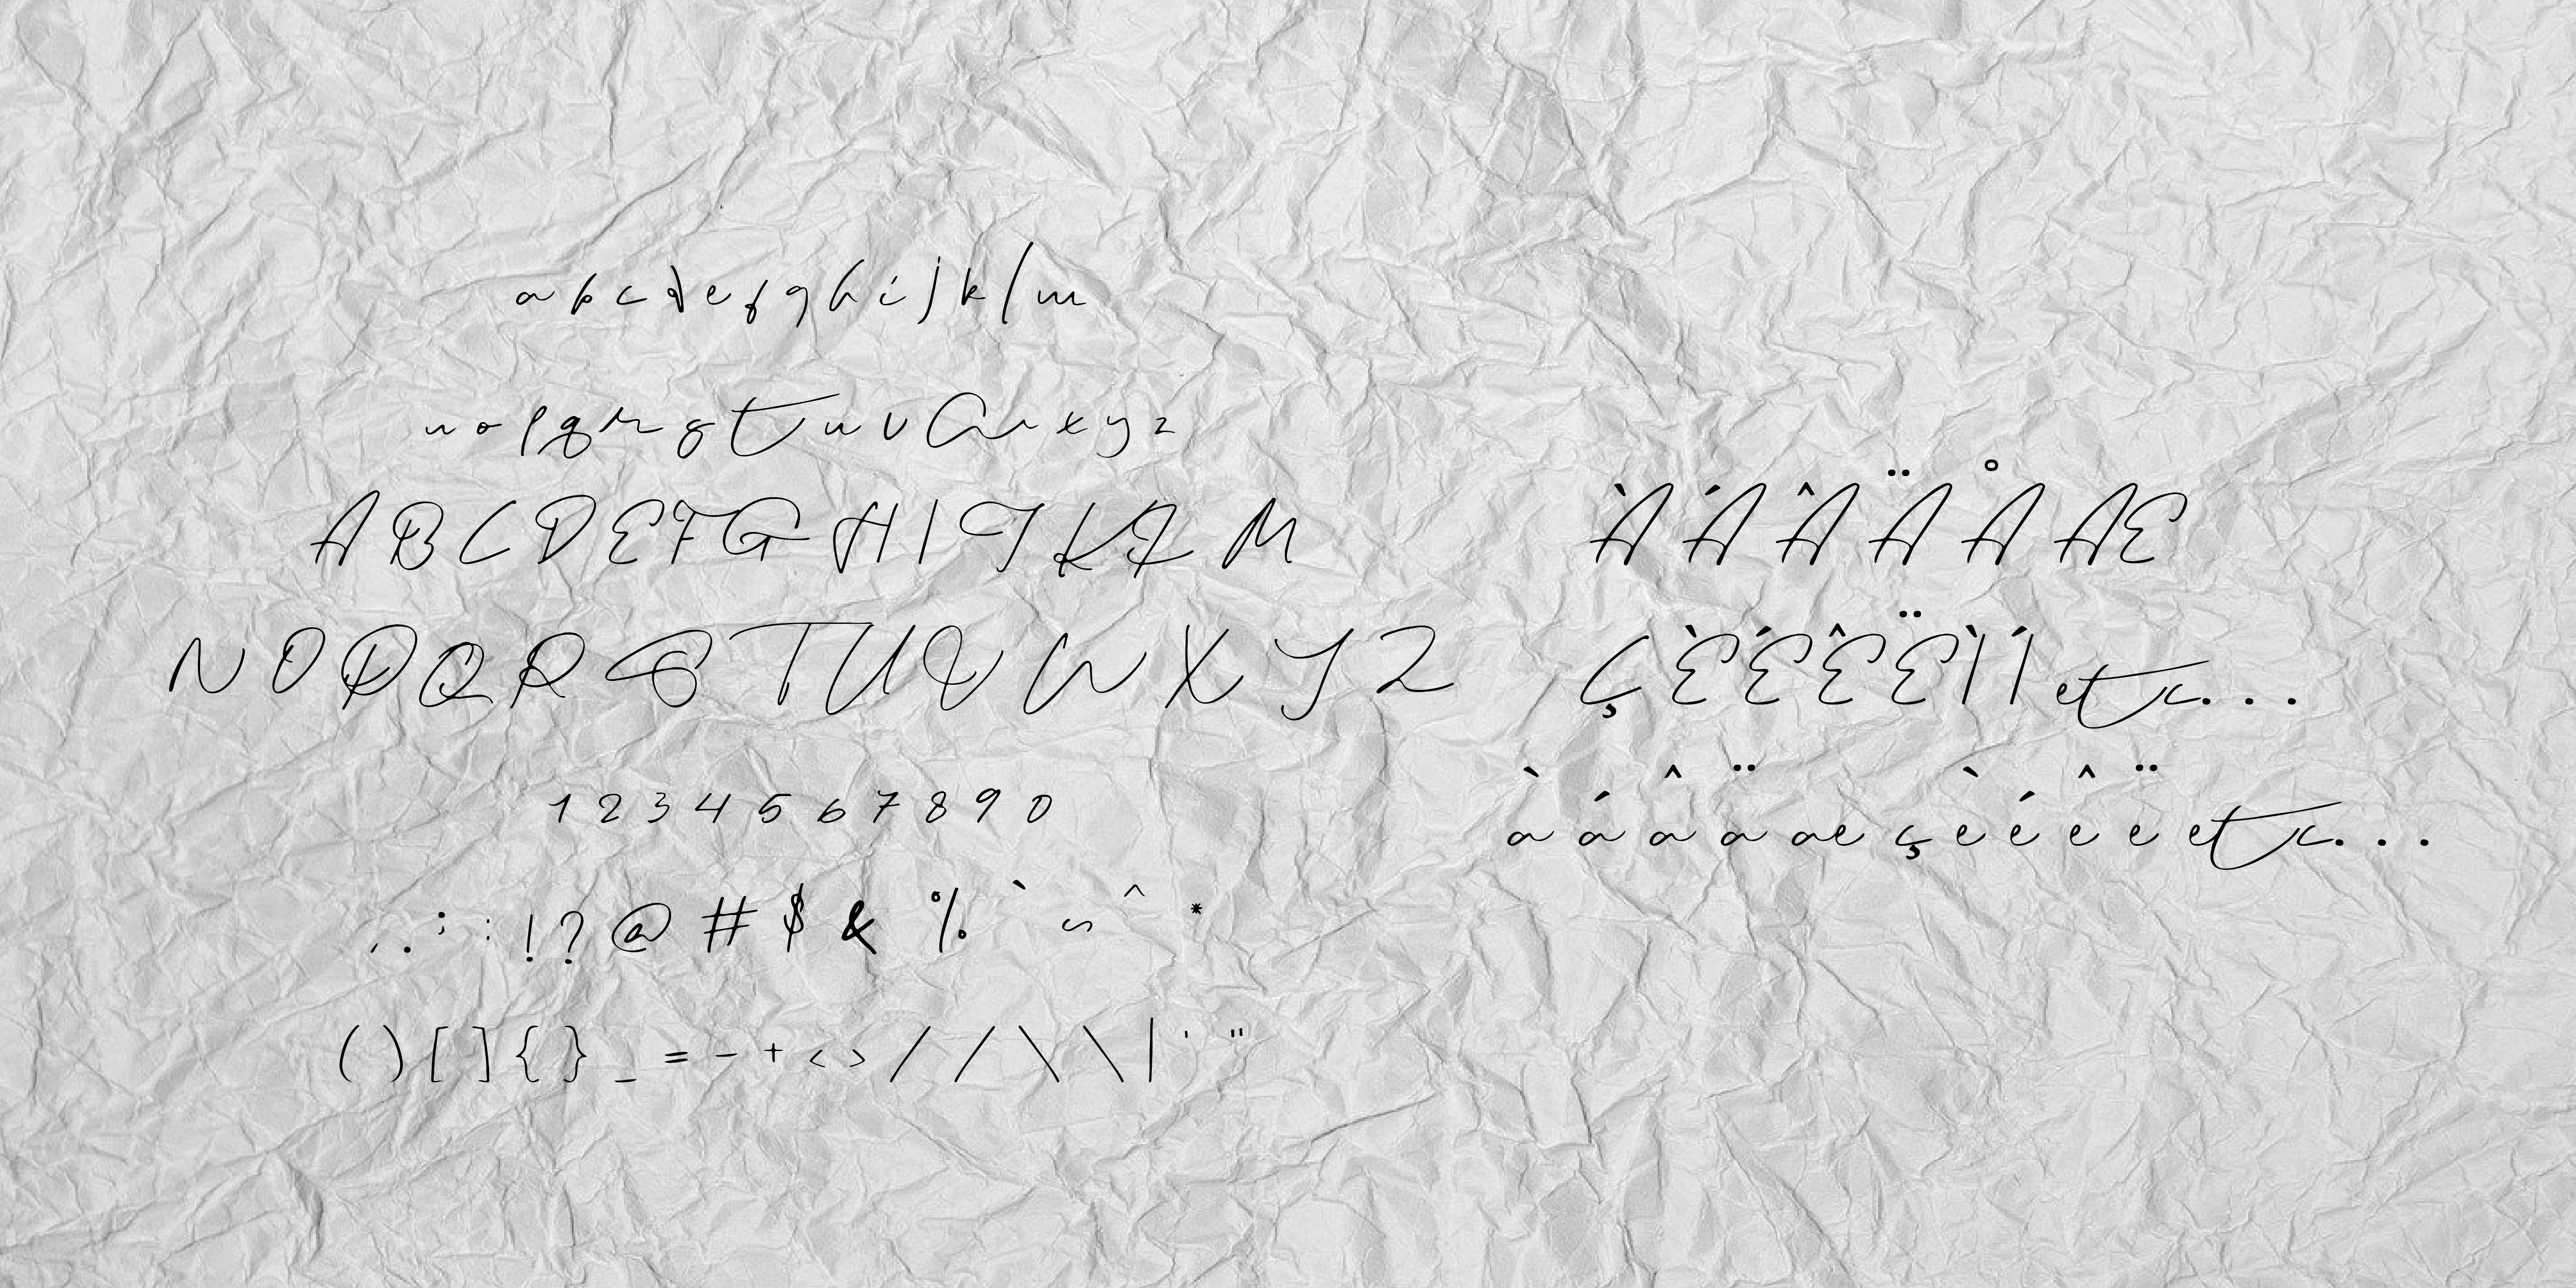 a b c d e f g h i j k l m
n o p q r s t u v w x y z
A B C D E F G H I J K L M
N O P Q R S T U V W X Y Z
1 2 3 4 5 6 7 8 9 0
, . ; : ! ? @ # $ & % ` ~ ^ *
( ) [ ] { } _ = - + < > / / \ \ | ' "
À Á Â Ä Å Æ
Ç È É Ê Ë Ì Í etc...
à á â ä æ ç è é ê ë etc...